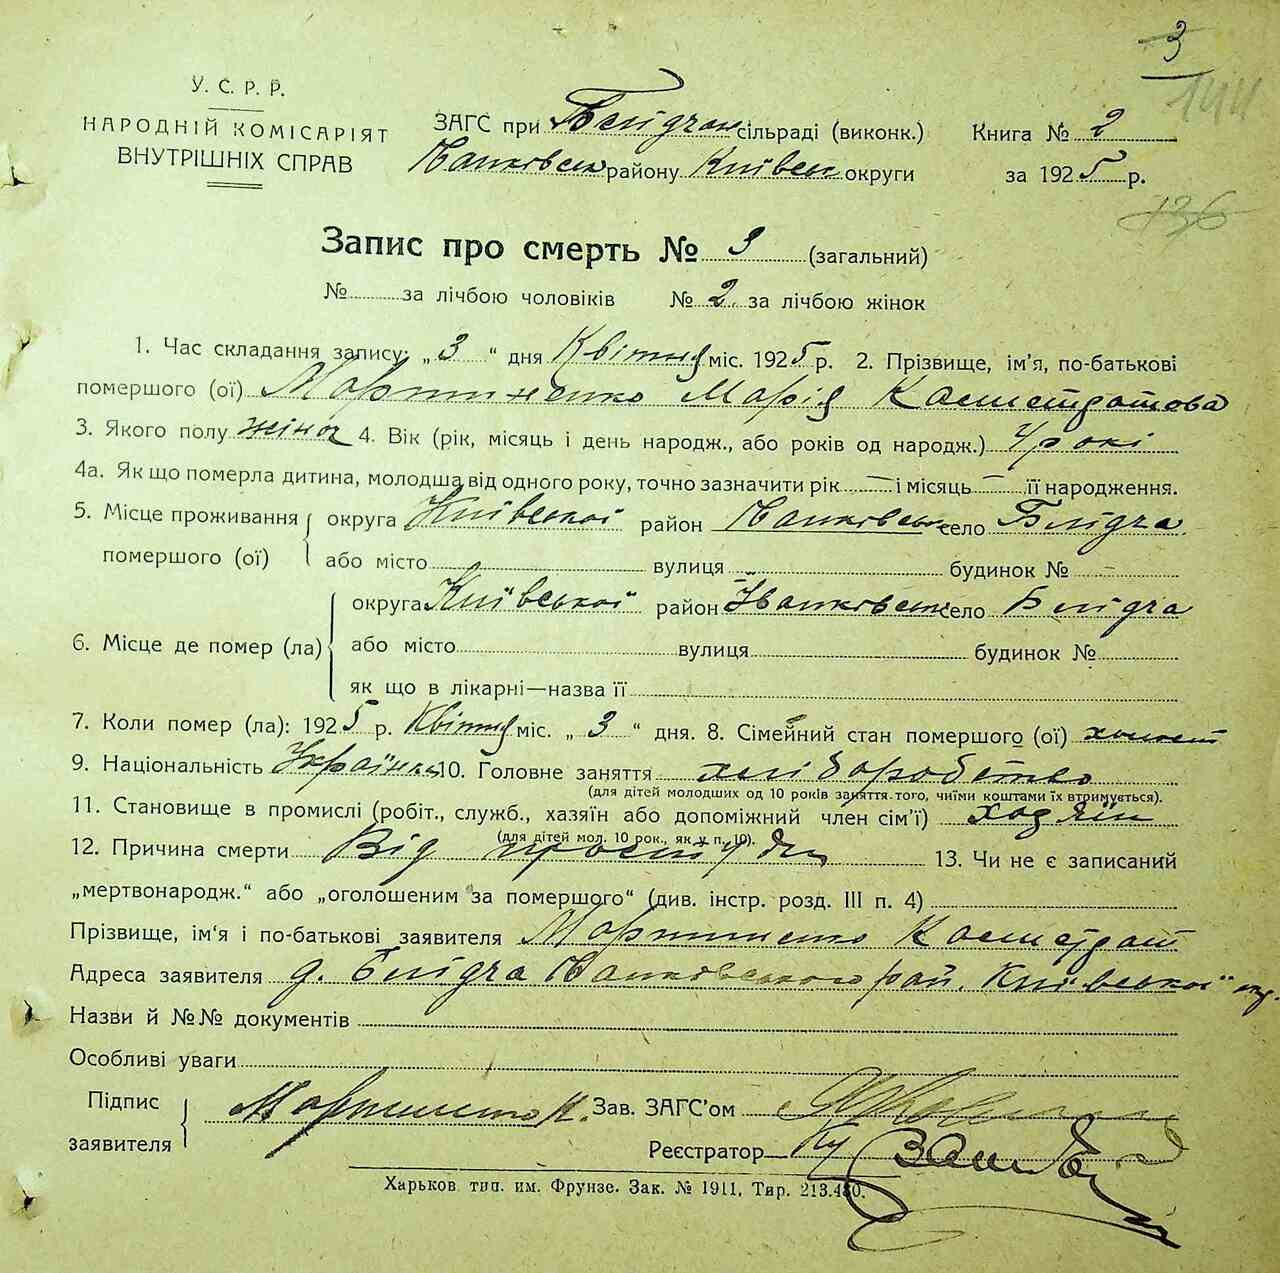 3
144
У. С. Р. Р.
НАРОДНІЙ КОМІСАРІЯТ
ВНУТРІШНІХ СПРАВ
ЗАГС при сільраді (виконк.)
району Київськ округи
Книга № 2
за 1925 р.
136
Запис про смерть № 3 (загальний)
№ за лічбою чоловіків № 2 за лічбою жінок
1. Час складання запису: „3“ дня Квітня міс. 1925 р. 2. Прізвище, ім'я, по-батькові
помершого (ої) Мартиненко Марія Калистратова
3. Якого полу жіноч 4. Вік (рік, місяць і день народж., або років од народж.) 4 рокі
4а. Як що померла дитина, молодша від одного року, точно зазначити рік — і місяць — її народження.
5. Місце проживання помершого (ої)
округа Київської район село
або місто вулиця будинок №
6. Місце де помер (ла)
округа Київської район село
або місто вулиця будинок №
як що в лікарні—назва її
7. Коли помер (ла): 1925 р. Квітня міс. „3“ дня. 8. Сімейний стан помершого (ої)
9. Національність Українка 10. Головне заняття хліборобство
(для дітей молодших од 10 років заняття того, чиїми коштами їх втримується).
11. Становище в промислі (робіт., служб., хазяїн або допоміжний член сім'ї) хазяїн
(для дітей мол. 10 рок., як у п. 10).
12. Причина смерти Від простуди 13. Чи не є записаний
„мертвонародж.“ або „оголошеним за помершого“ (див. інстр. розд. III п. 4)
Прізвище, ім'я і по-батькові заявителя Мартиненко Калистрат
Адреса заявителя рай. Київської окр.
Назви й №№ документів
Особливі уваги
Підпис заявителя Мартиненко К. Зав. ЗАГС'ом
Реєстратор
Харьков тип. им. Фрунзе. Зак. № 1911. Тир. 213.480.